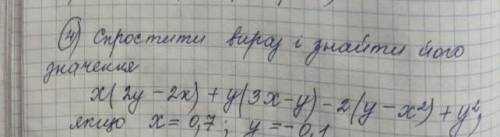 ④ Спростити вираз і знайти його
значення
x(2y-2x)+y(3x-y)-2(y-x²)+y²,
якщо x=0,7; y=-0,1